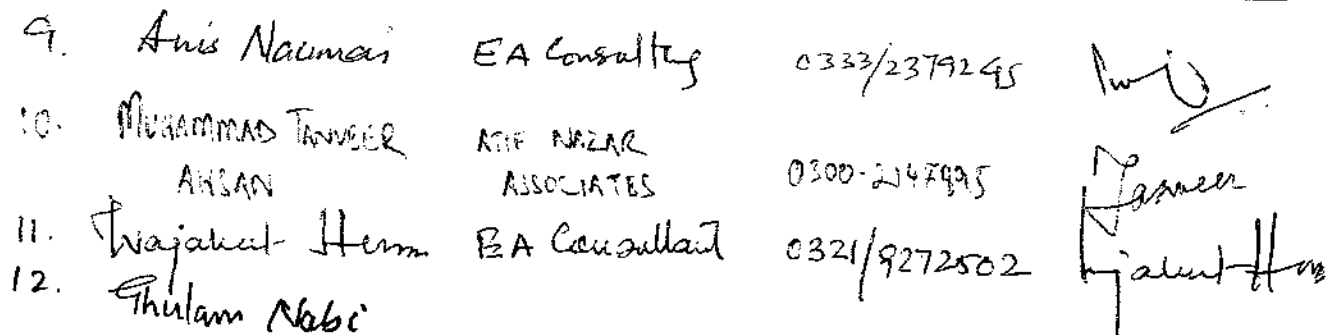 9. Anis Nauman EA Consulting 0333/2379245
10. MUHAMMAD TANVEER ATIF NAZAR
AHSAN ASSOCIATES 0300-2147995 Tanveer
11. Wajahat EA Consultant 0321/9272502 Wajahat
12. Ghulam Nabi